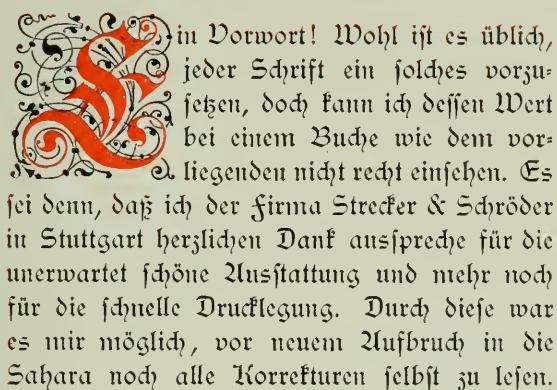 Ein Vorwort! Wohl ist es üblich,
jeder Schrift ein solches vorzu-
setzen, doch kann ich dessen Wert
bei einem Buche wie dem vor-
liegenden nicht recht einsehen. Es
sei denn, daß ich der Firma Strecker & Schröder
in Stuttgart herzlichen Dank ausspreche für die
unerwartet schöne Ausstattung und mehr noch
für die schnelle Drucklegung. Durch diese war
es mir möglich, vor neuem Aufbruch in die
Sahara noch alle Korrekturen selbst zu lesen.